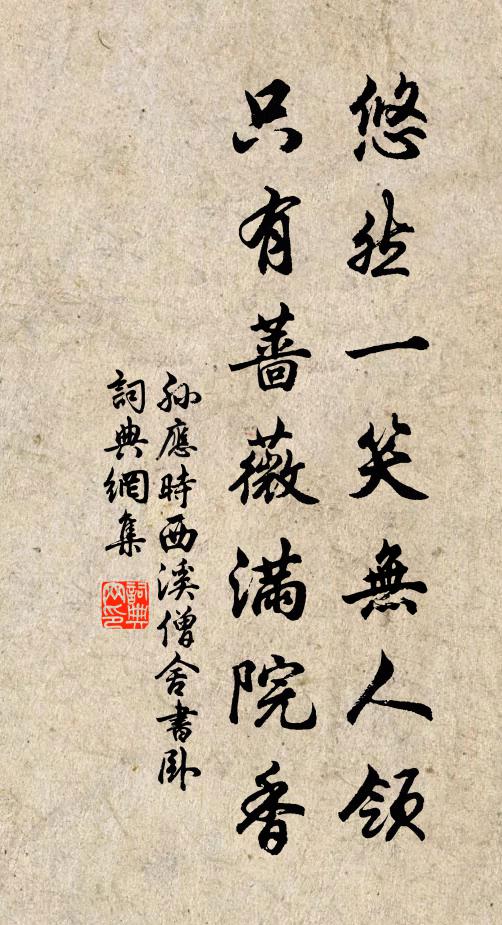 悠然一笑無人領
只有薔薇滿院香
孫應時西溪僧舍書臥
詞典網集
詞典網印